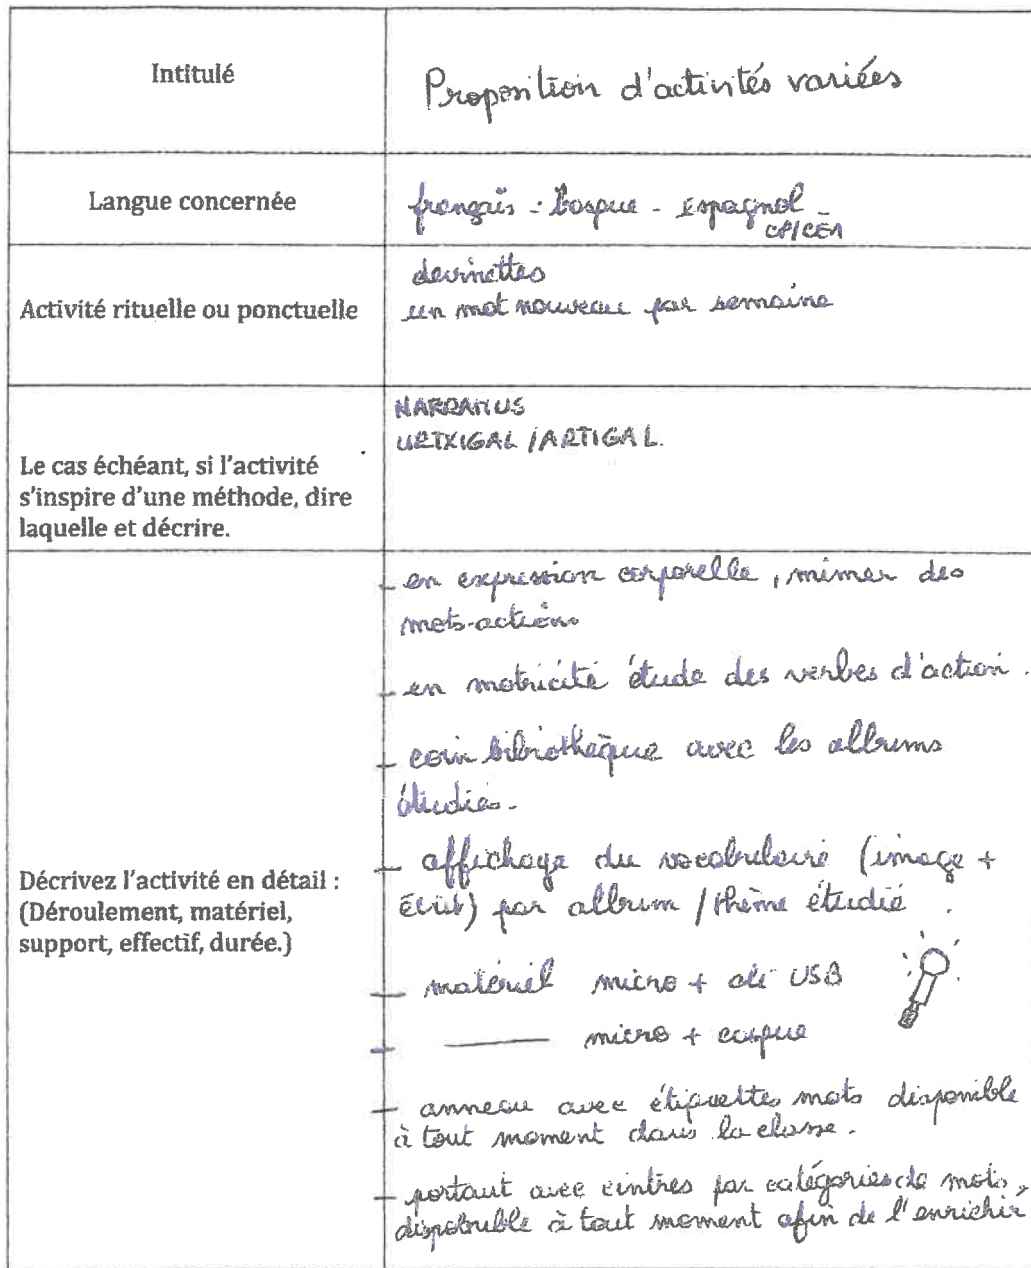 Intitulé
Proposition d'activités variées
Langue concernée
français - basque - espagnol -
CP/CE1
Activité rituelle ou ponctuelle
devinettes
un mot nouveau par semaine
Le cas échéant, si l'activité
s'inspire d'une méthode, dire
laquelle et décrire.
NARRAMUS
URTXIGAL / ARTIGAL.
Décrivez l'activité en détail :
(Déroulement, matériel,
support, effectif, durée.)
- en expression corporelle, mimer des
mots-actions
- en motricité étude des verbes d'action.
- coin bibliothèque avec les albums
étudiés.
- affichage du vocabulaire (image +
écrit) par album / thème étudié.
- matériel micro + clé USB
- —— micro + casque
- anneau avec étiquettes mots disponible
à tout moment dans la classe.
- portant avec cintres par catégories de mots,
disponible à tout moment afin de l'enrichir